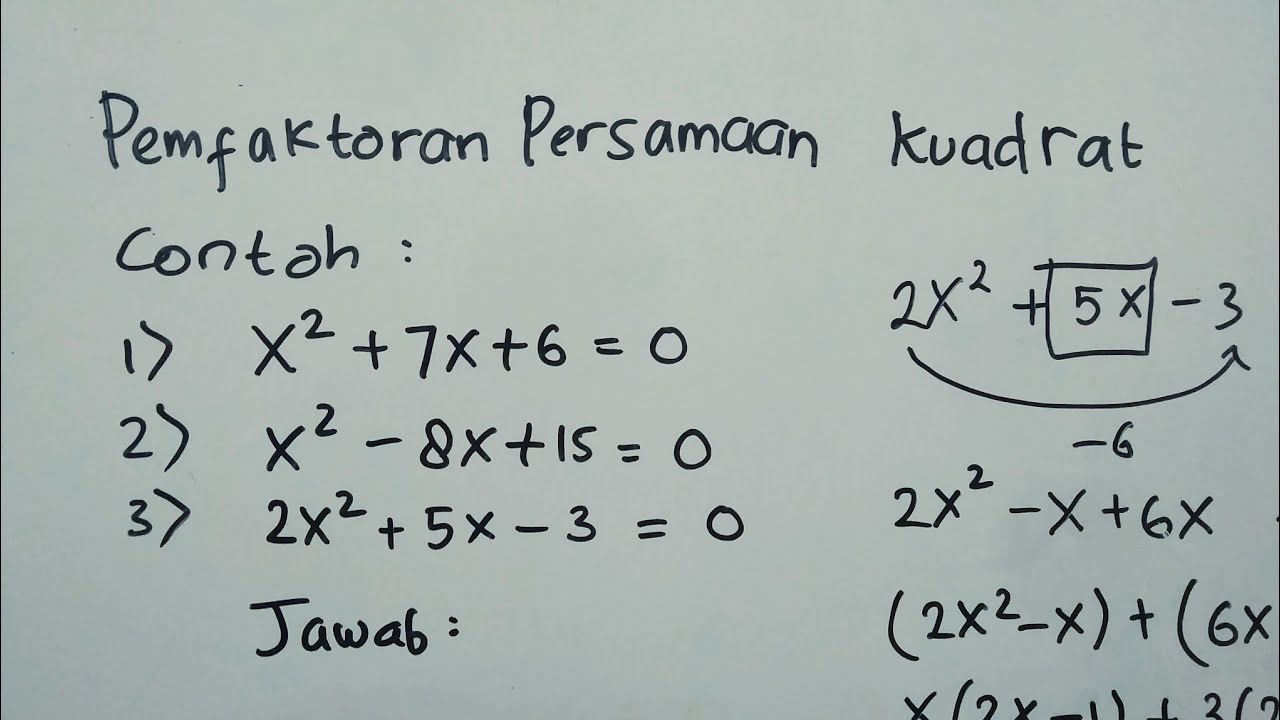 Pemfaktoran Persamaan kuadrat
Contoh :
1) x² + 7x + 6 = 0
2) x² - 8x + 15 = 0
3) 2x² + 5x - 3 = 0
Jawab :
2x² + 5x - 3
-6
2x² - x + 6x
(2x² - x) + (6x
x(2x - 1) + 3(2